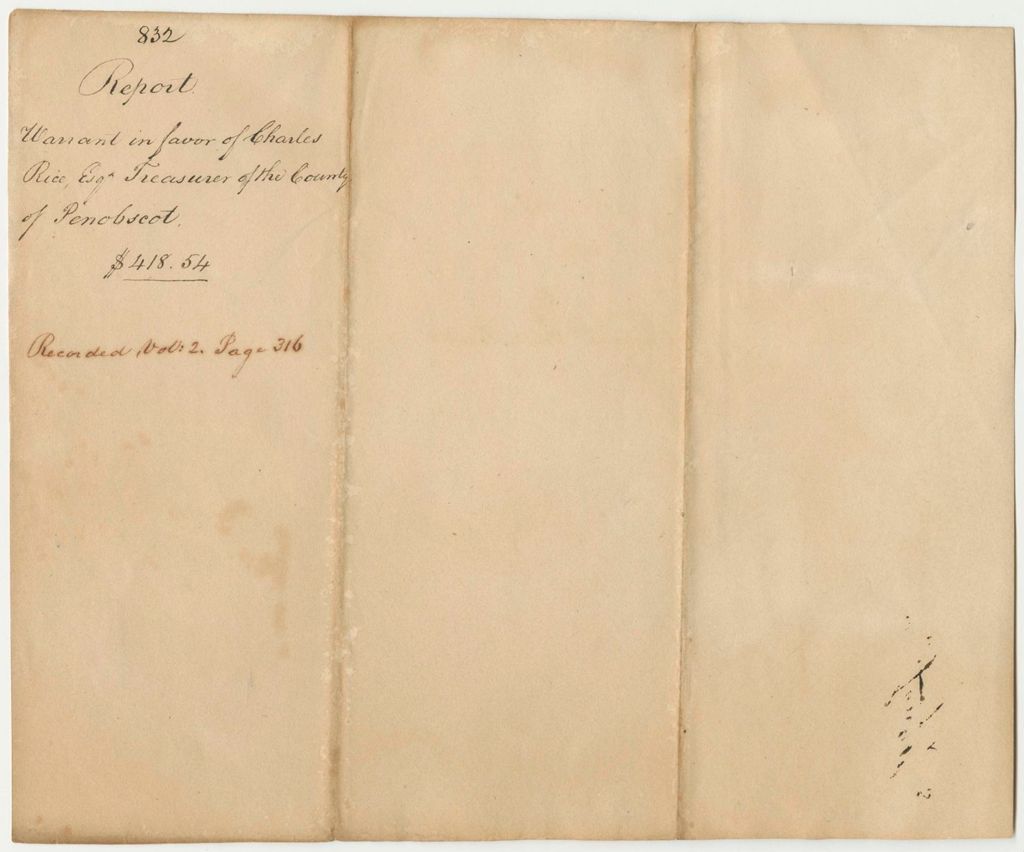 832
Report.
Warrant in favor of Charles
Rice, Esqr Treasurer of the County
of Penobscot.
$418.54
Recorded Vol: 2. Page 316